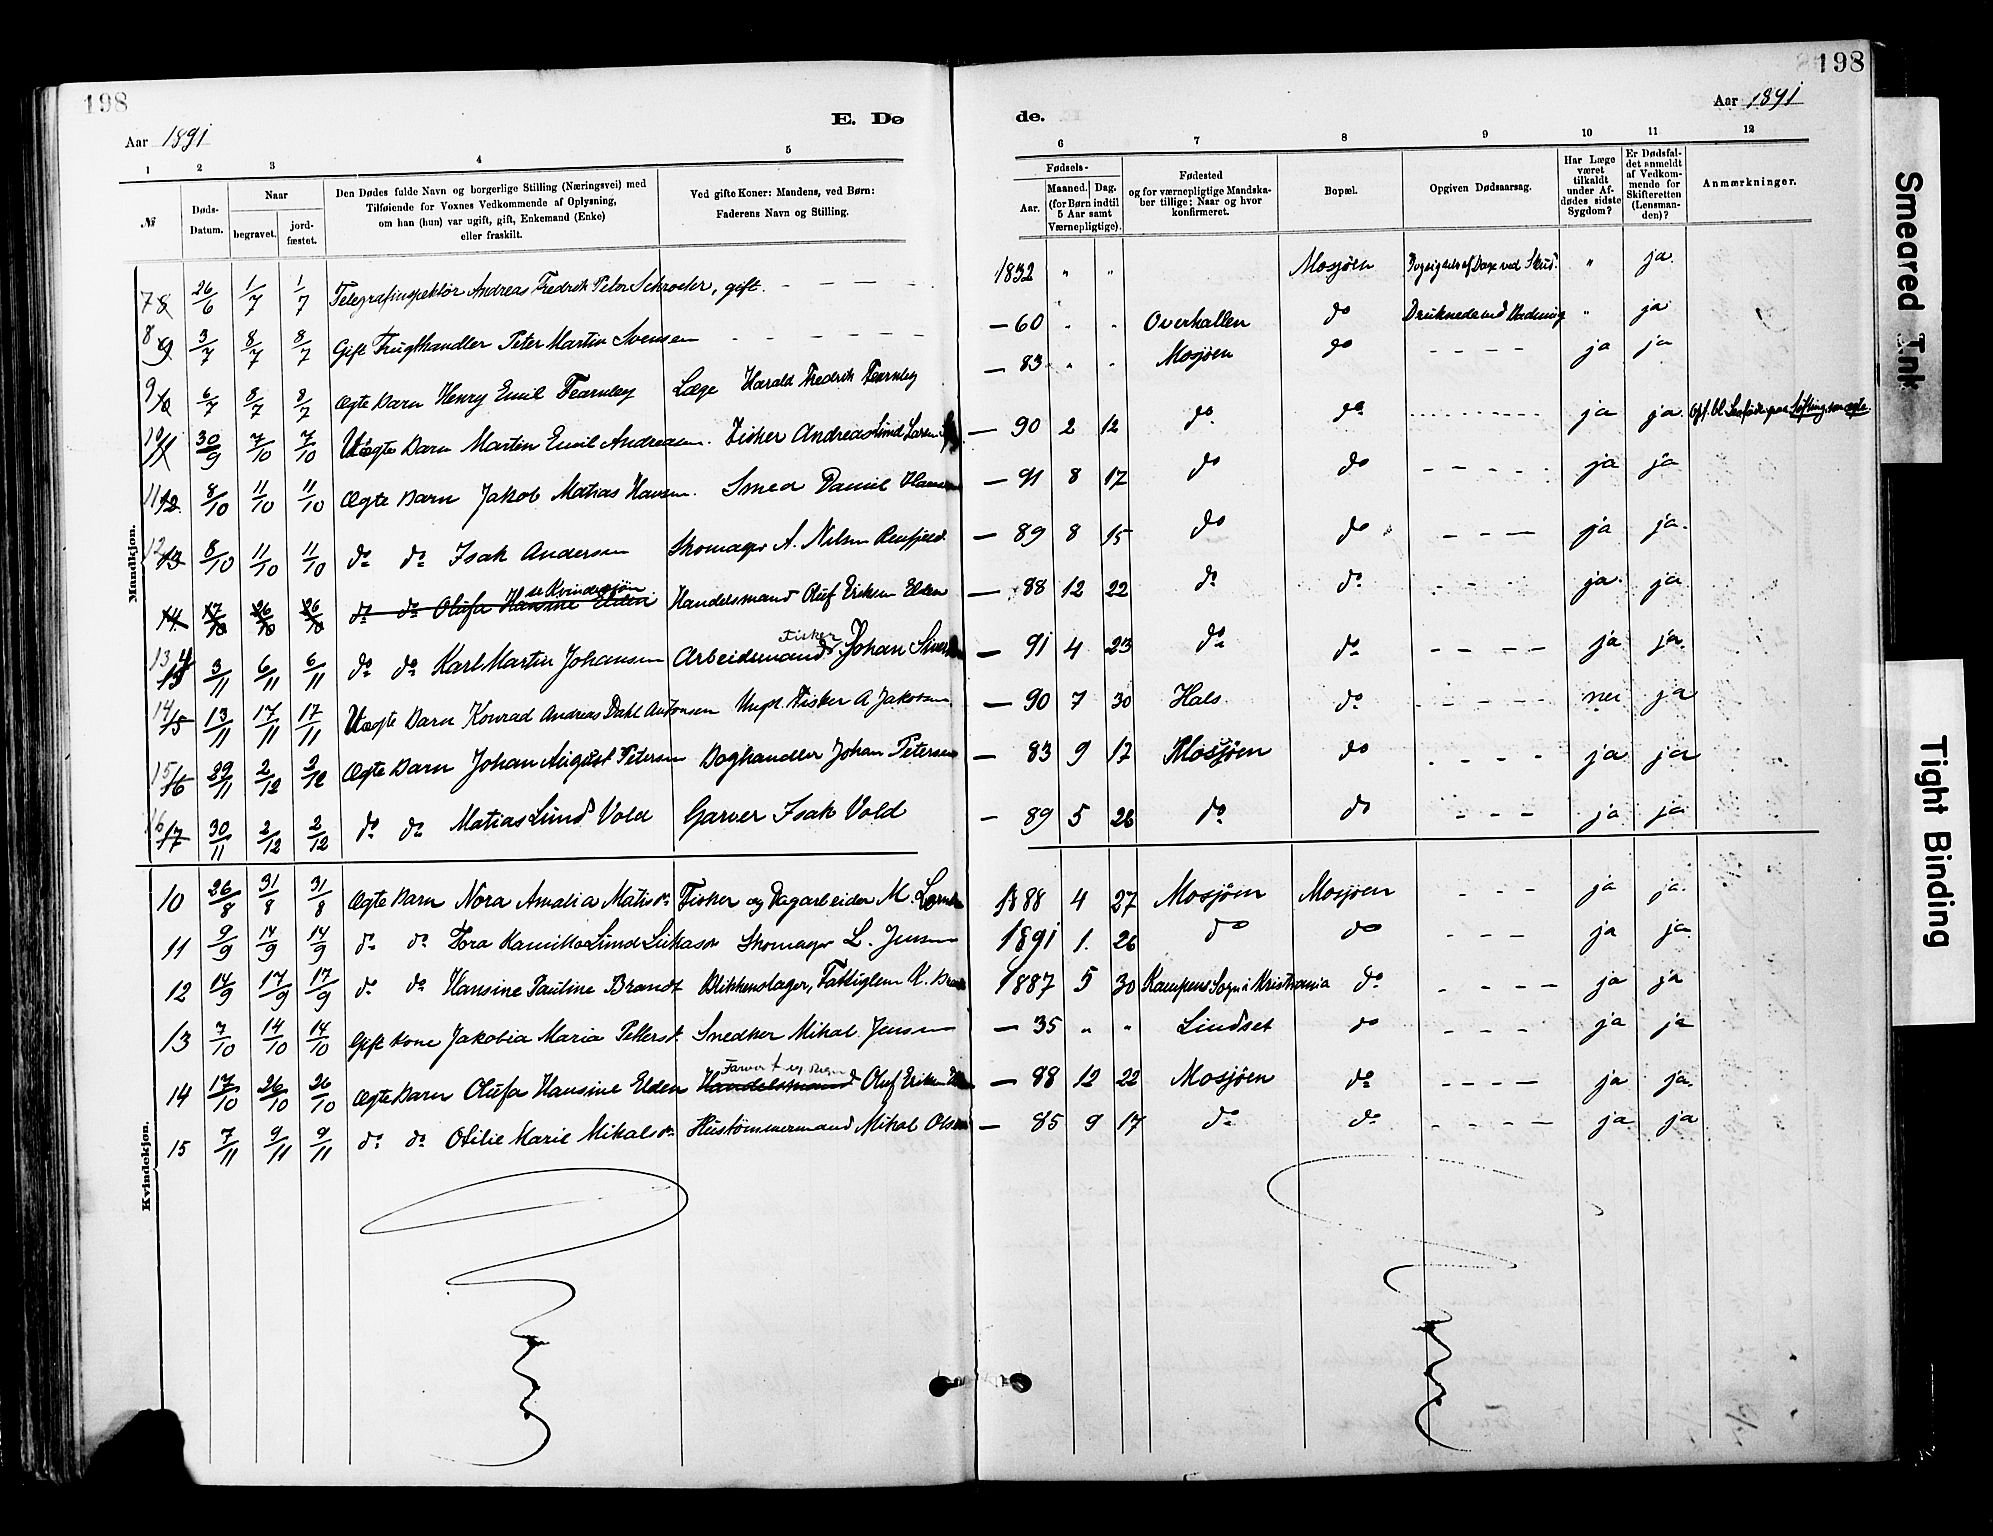 198
198
Aar 1891
E. Dø
de.
Aar 1891
1 2 3 4 5 6 7 8 9 10 11 12
№
Døds-Datum.
Naar
begravet.
jord-fæstet.
Den Dødes fulde Navn og borgerlige Stilling (Næringsvei) med
Tilføiende for Voxnes Vedkommende af Oplysning,
om han (hun) var ugift, gift, Enkemand (Enke)
eller fraskilt.
Ved gifte Koner: Mandens, ved Børn:
Faderens Navn og Stilling.
Fødsels-
Aar.
Maaned. Dag.
(for Børn indtil
5 Aar samt
Værnepligtige).
Fødested
og for værnepligtige Mandska-
ber tillige: Naar og hvor
konfirmeret.
Bopæl.
Opgiven Dødsaarsag.
Har Læge
været
tilkaldt
under Af-
dødes sidste
Sygdom?
Er Dødsfal-
det anmeldt
af Vedkom-
mende for
Skifteretten
(Lensman-
den)?
Anmærkninger.
Mandkjøn.
7 8 26/6 1/7 1/7 Telegrafinspektør Andreas Fredrik Peter Schroeter, gift. - - - - 1832 " " Mosjøen " ja.
8 9 3/7 8/7 8/7 Gift Frugthandler Peter Martin Svensen - - - - - 60 " " Overhallen do Druknede ved Badning " ja
9 10 6/7 8/7 8/7 Ægte Barn Henry Emil Fearnley Læge Harald Fredrik Fearnley - 83 " " Mosjøen do - - - - ja ja
10 11 30/9 7/10 7/10 Uægte Barn Martin Emil Andreasen. Fisker Andreas Lund - 90 2 12 do do ja ja.
11 12 8/10 11/10 11/10 Ægte Barn Jakob Matias Hansen. Smed Daniel - 91 8 17 do do - - - - ja ja
12 13 8/10 11/10 11/10 do do Isak Andersen Skomager A. Nilsen Renfjeld. - 89 8 15 do do - - - - ja ja.
14 17/10 26/10 26/10 do do Olufa Hansine Elden se Kvindekjøn Handelsmand Oluf Eriksen Elden - 88 12 22 do do - - - - ja ja
13 14 15 3/11 6/11 6/11 do do Karl Martin Johansen Arbeidsmand Fisker Johan - 91 4 23 do do - - - - ja ja.
14 15 13/11 17/11 17/11 Uægte Barn Konrad Andreas Dahl Antonsen Ungk. Fisker A Jakobsen - 90 7 30 Hals do - - - - nei ja
15 16 29/11 2/12 2/12 Ægte Barn Johan August Petersen Boghandler Johan Petersen - 83 9 17 Mosjøen do - - - - ja ja
16 17 30/11 2/12 2/12 do do Matias Lund Vold Garver Isak Vold - 89 5 26 do do - - - ja ja
Kvindekjøn.
10 26/8 31/8 31/8 Ægte Barn Nora Amalia Matisdr. Fisker og Dagarbeider M. 1888 4 27 Mosjøen Mosjøen - - - ja ja.
11 9/9 14/9 14/9 do do Tora Kamilla Lund Skomager L. Jensen 1891 1. 26 do do - - - ja ja
12 14/9 17/9 17/9 do do Hansine Pauline Brandt Blikkenslager, Fattiglem 1887 5 30 Kampens Sogn i Kristiania do - - - - ja ja
13 7/10 14/10 14/10 Gift Kone Jakobia Maria Pettersd. Snedker Mikal Jensen - 35 " " Lindset do - - - ja ja
14 17/10 26/10 26/10 Ægte Barn Olufa Hansine Elden Handelsmand Oluf Eriksen - 88 12 22 Mosjøen do - - - - ja ja.
15 7/11 9/11 9/11 do do Otilie Marie Mikalsdr. Hustømmermand Mikal Olsen - 85 9 17 do do - - - - ja ja
Smeared Ink
Tight Binding